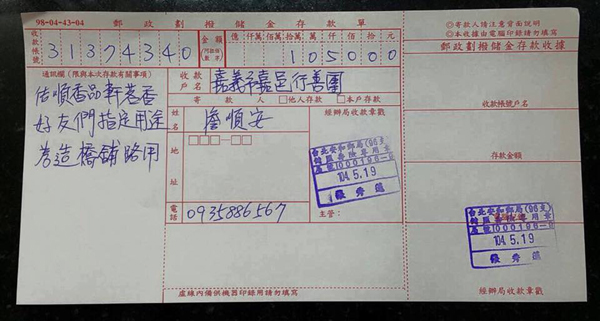 98-04-43-04 郵政劃撥儲金存款單
◎寄款人請注意背面說明
◎本收據由電腦印錄請勿填寫
收款帳號 31374340
金額 億 仟萬 佰萬 拾萬 萬 仟 佰 拾 元
105000
郵政劃撥儲金存款收據
通訊欄（限與本次存款有關事項）
佑順香品軒茗香
好友們指定用途
為造橋鋪路用
收款戶名 嘉義市嘉邑行善團
寄款人 □他人存款 □本戶存款
姓名 詹順安
地址
電話 0935886567
經辦局收款章戳
台北安和郵局(96支)
104.5.19
主管：
虛線內備供機器印錄用請勿填寫
收款帳號戶名
存款金額
台北安和郵局(96支)
104.5.19
經辦局收款章戳